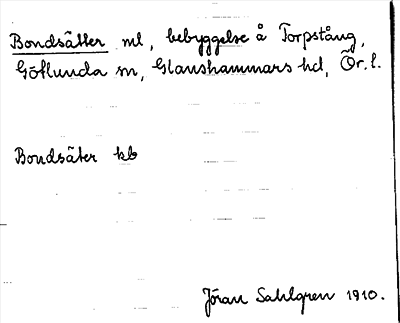 Bondsätter ml, bebyggelse å Torpstång,
Götlunda sn, Glanshammars hd, Ör. l.
Bondsäter kb
Jöran Sahlgren 1910.